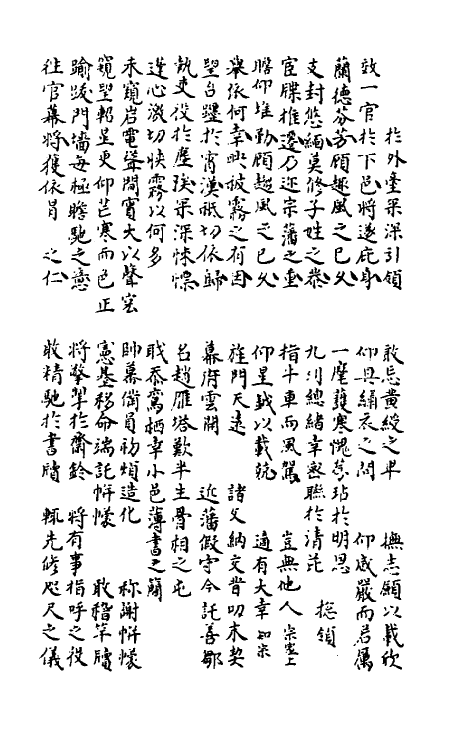 於外臺采深引領
效一官於下邑將遂庇身
蘭德芬芳願趨風之已久
支封悠緬莫修子姓之恭
宦牒推遷乃迩宗藩之重
瞻仰堆勤願趨風之已久
舉依何幸映披霧之有因
望台躔於霄漢祗切依歸
執吏役於塵埃采深悚慄
蓬心激切快霧以何多
未窺岩電聲聞實大以聲宏
窺望軺星更仰芒寒而色正
踰跋門墻每極瞻馳之戀
往官幕將獲依冐 之仁
敢忘黄綬之卑 撫志願以載欣
仰具繡衣之問 仰威嚴而若厲
一麾護寒愧莫玷於明恩 揔領
九列總緒幸密聯於清芘
指斗車而風駕 豈無他人 宗室上
仰星鉞以載兢 適有大幸 知宗
旌門天遠 諸父納交昔叨末契
幕府雲開 近藩假守今託善鄰
名趙雁塔歎半生骨相之屯
戢忝鸞栖幸小邑薄書之簡
帥幕備員初煩造化 称謝帡幪
憲基移命端託帡幪 敢稽竿牘
將擎犀於齋鈴 將有事指呼之役
敢精馳於書牘 輒先修咫尺之儀